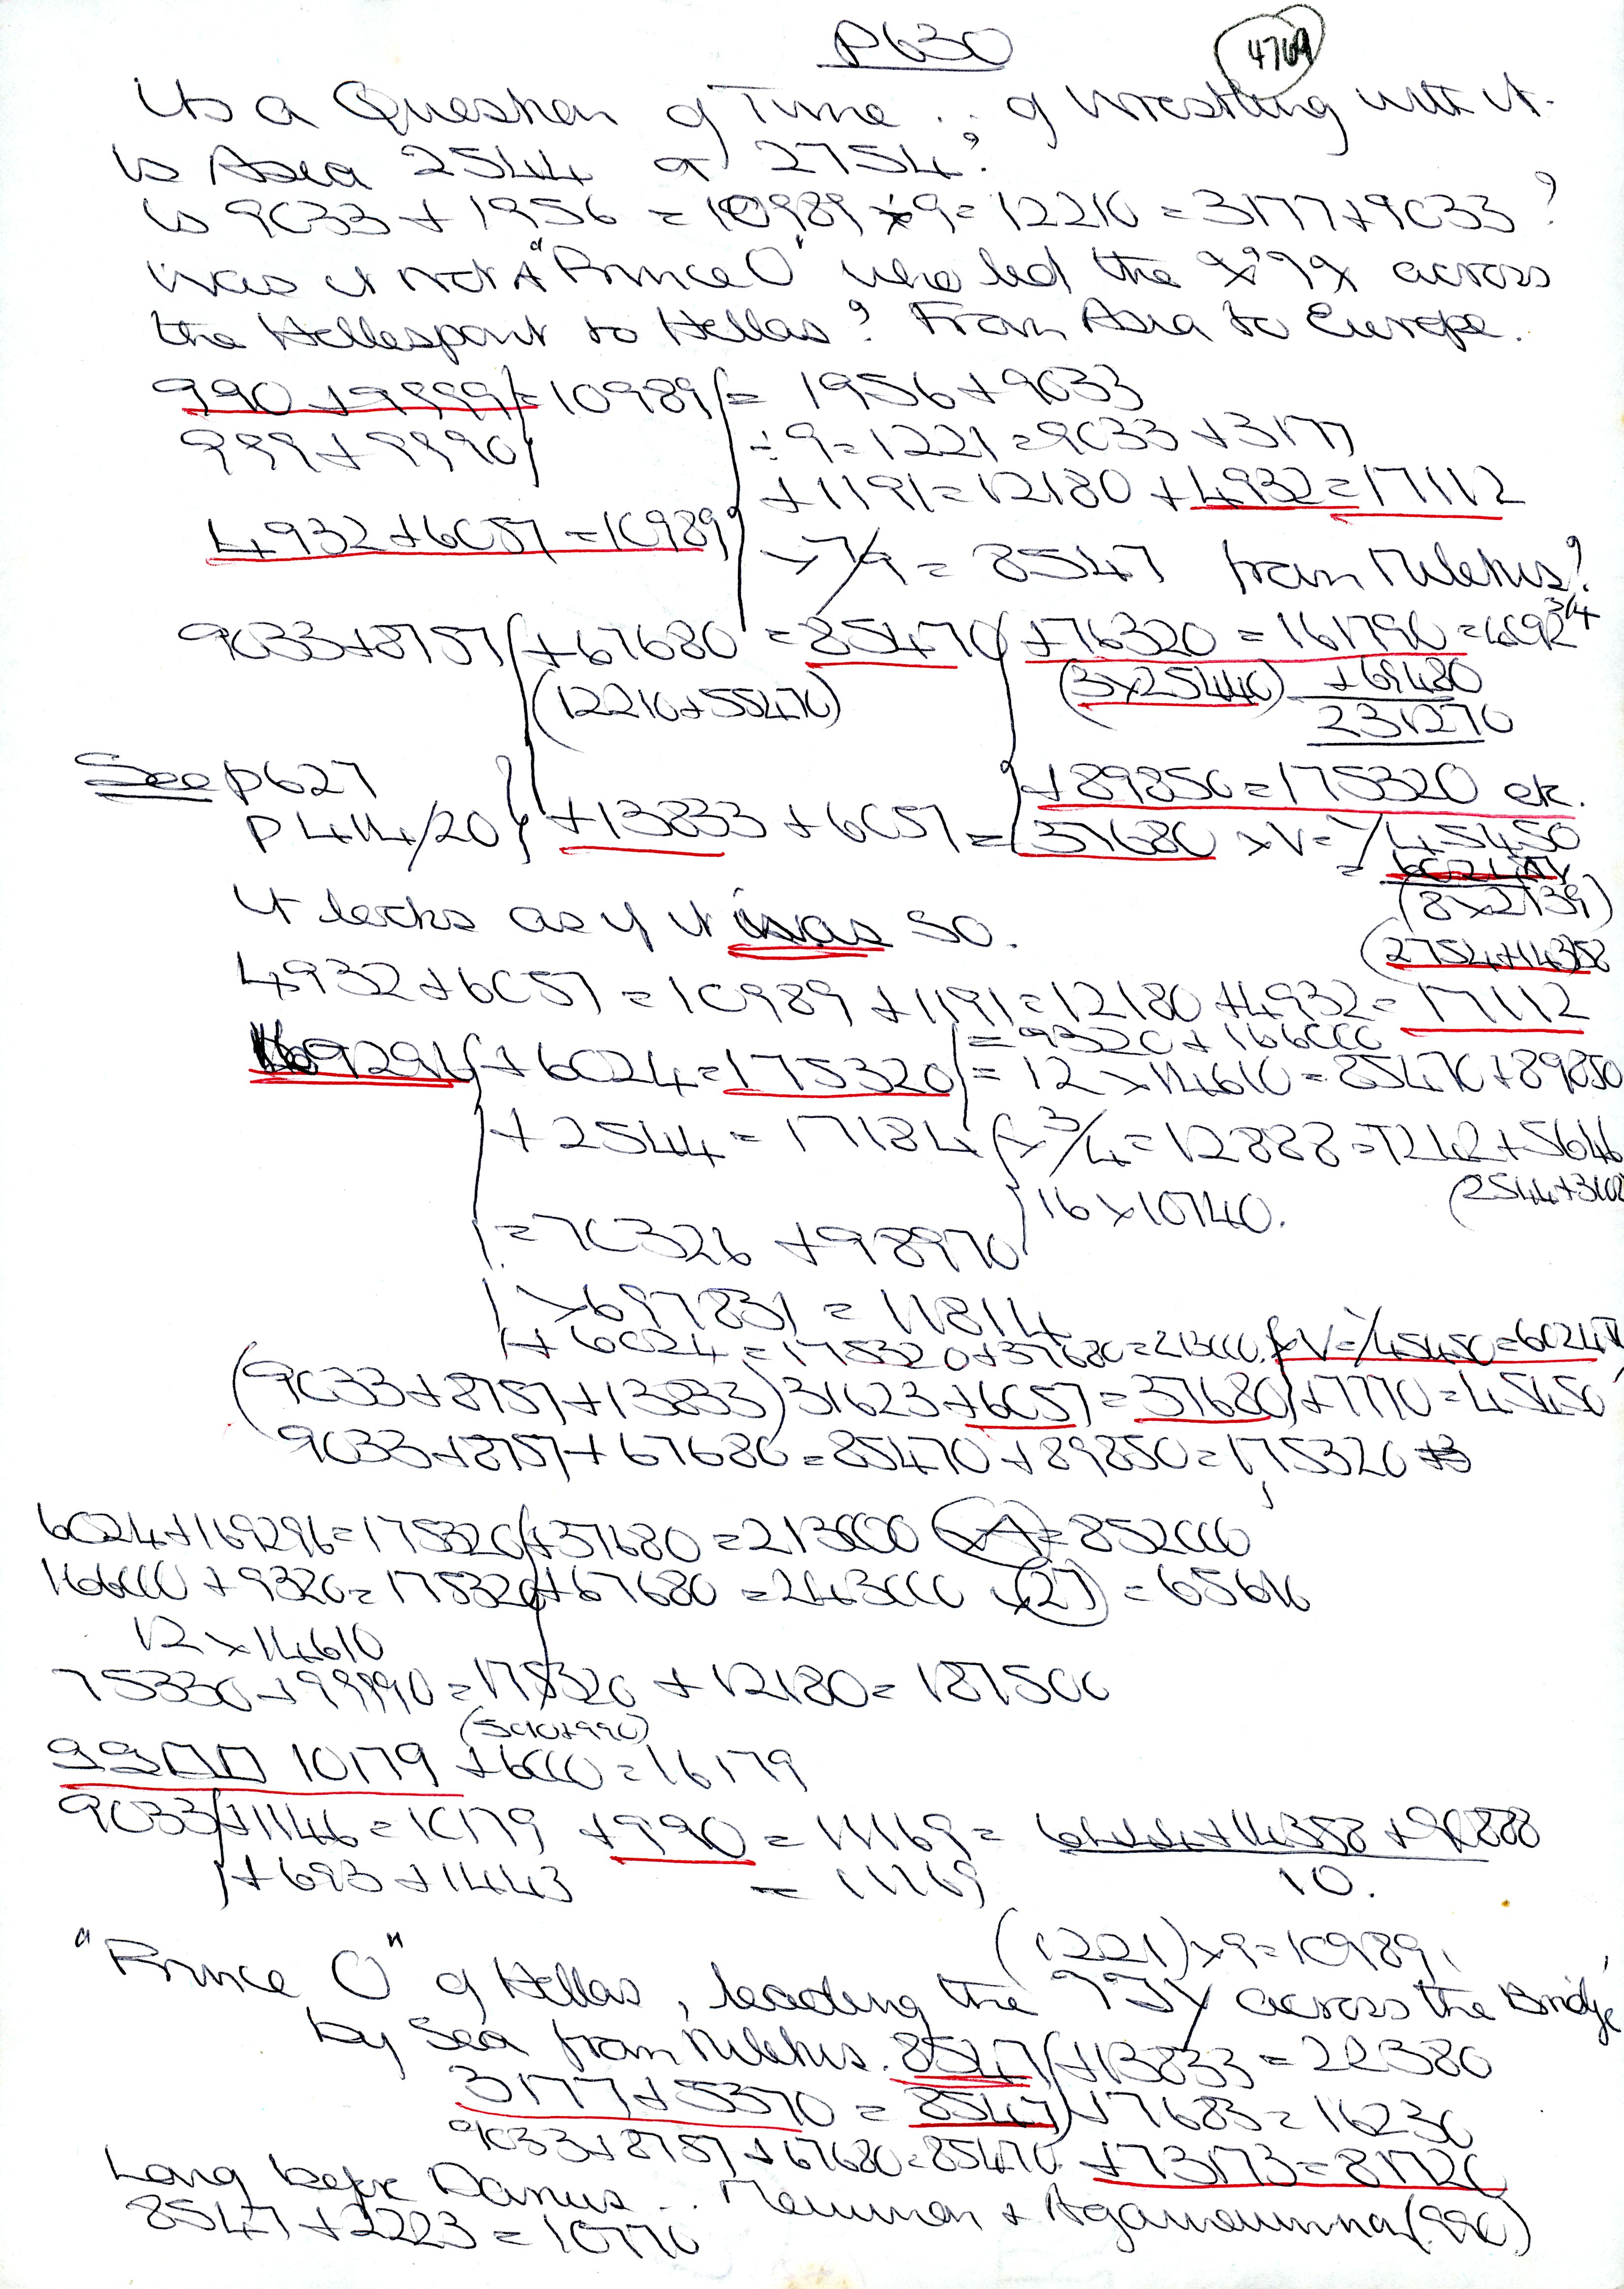 P630
4769
Its a Question of Time .. of wrestling with it.
Is Asia 2544 or 2754?
Is 9033 + 1956 = 10989 ÷ 9 = 12210 = 3177 + 9033?
Was it not A "Prince O" who led the across
the Hellespont to Hellas? From Asia to Europe.
990 + 9999 = 10989 = 1956 + 9033
999 + 9990
÷ 9 = 1221 = 9033 + 3177
+ 1191 = 12180 + 4932 = 17112
4932 + 6057 = 10989
× 7/9 = 8547 from Miletus?
9033 + 8757 + 67680 = 85470 + 76320 = 161790
(12210 + 55470) (3 × 25440) + 69480
231270
See p627
P 414/20
+ 89850 = 175320 etc.
+ 13833 + 6057 = 37680 × V = 45450
(8 × 2139)
It looks as if it was so.
(2754 + 14358
4932 + 6057 = 10989 + 1191 = 12180 + 4932 = 17112
= 9320 + 166000
169296 + 6024 = 175320 = 12 × 14610 = 85470 + 89850
+ 2544 = 17184 × 3/4 = 12888 = 7242 + 5646
(2544 + 3102
16 × 10740.
= 70326 + 98970
> 697831 = 11814
+ 6024 = 175320 + 37680 = 213000.
(9033 + 8757 + 13833) 31623 + 6057 = 37680 + 7770 = 45450
9033 + 8757 + 67680 = 85470 + 89850 = 175320
6024 + 169296 = 175320 + 37680 = 213000 × 4 = 852000
166000 + 9320 = 175320 + 67680 = 243000 × 27 = 65616
12 × 14610
75330 + 99990 = 175320 + 12180 = 187500
(5010 + 990)
10179 + 6000 = 16179
9033 + 1146 = 10179 + 990 = 11169 = 6144 + 14358 + 90888
+ 693 + 1443 = 11169 10.
(1221) × 9 = 10989,
"Prince O" of Hellas, leading the across the Bridge
by Sea from Miletus. 8547 + 13833 = 22380
3177 + 5370 = 8547 + 7683 = 16230
9033 + 8757 + 67680 = 85470 + 73173 = 81720
Long before Darius .. Memnon + Agamemnon (990)
8547 + 2223 = 10770